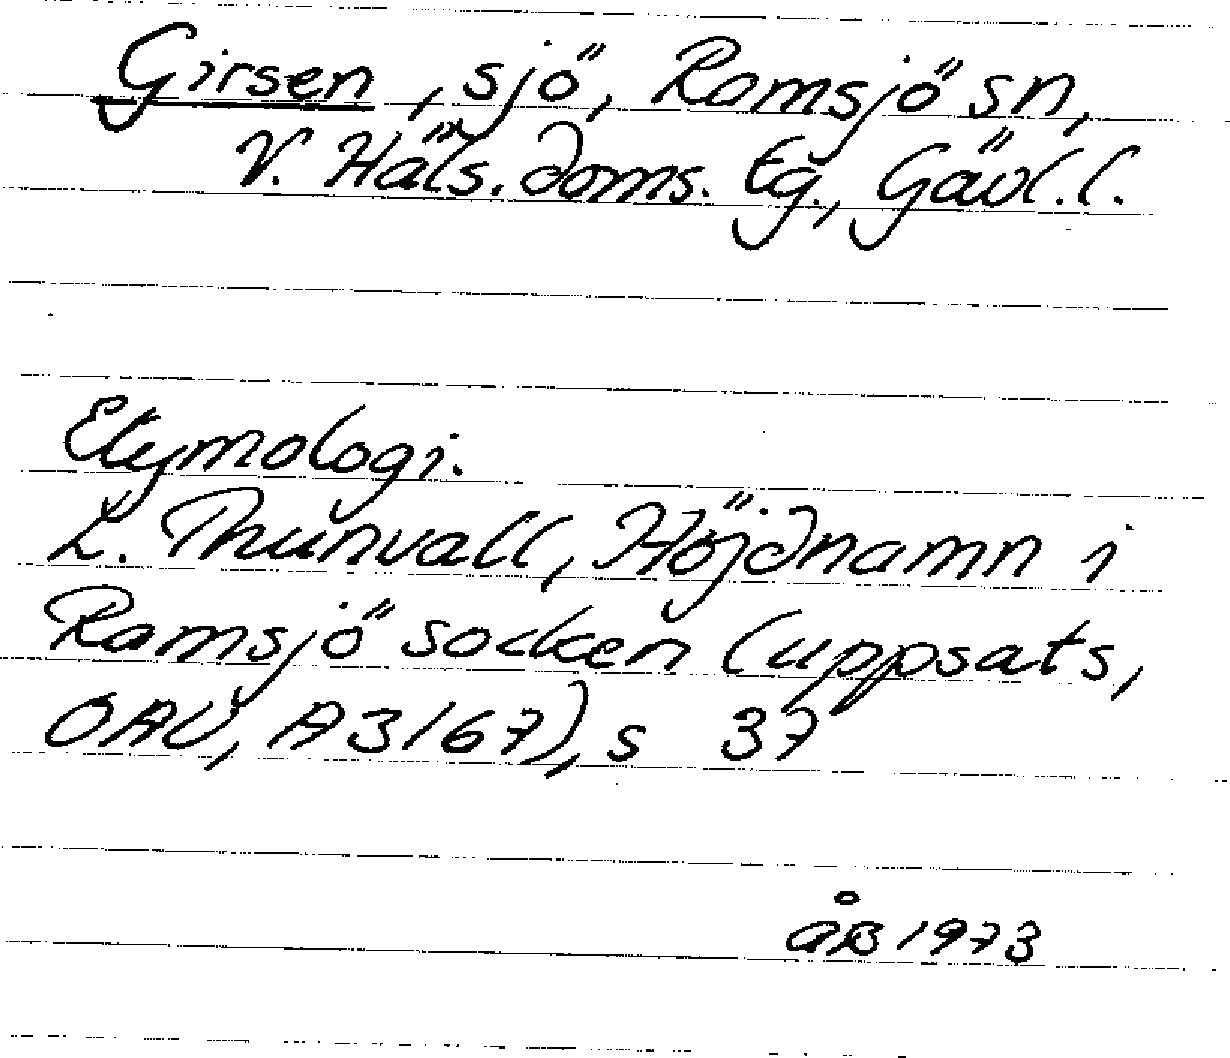 Girsen, sjö, Ramsjö sn,
V. Häls. doms. tg., Gävl. l.
Etymologi.
L. Thunvall, Höjdnamn i
Ramsjö socken (uppsats,
OAU, A3167), s 37
ÅB 1973